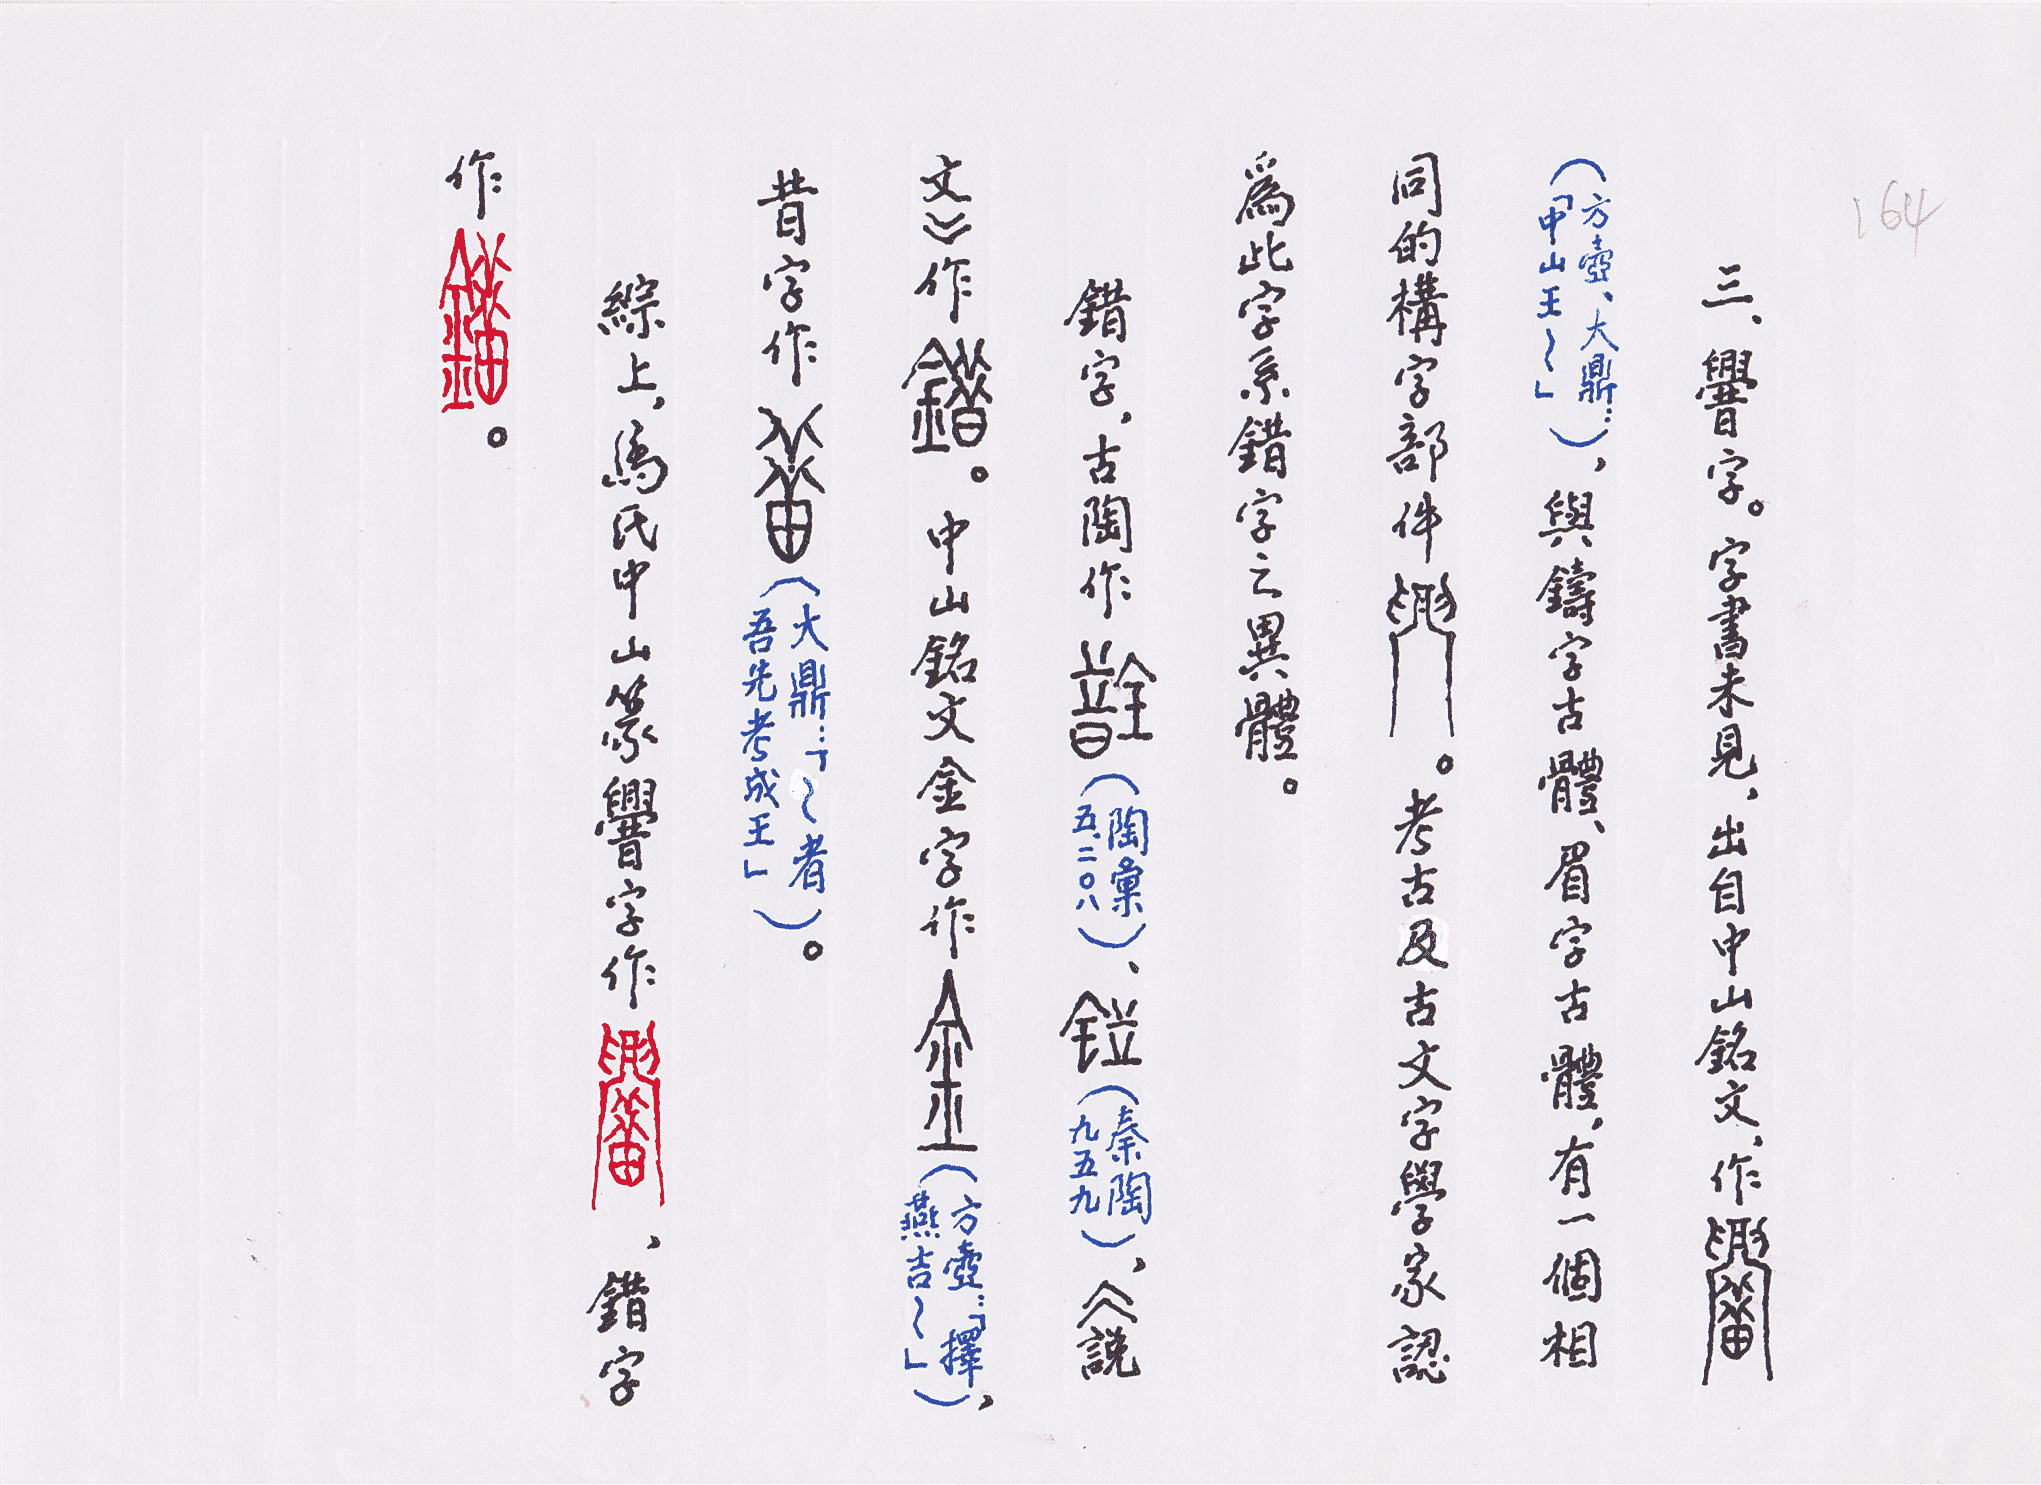 164
三、字。字書未見，出自中山銘文，作
（方壺、大鼎：「中山王～」），與鑄字古體、眉字古體，有一個相
同的構字部件。考古及古文字學家認
爲此字系錯字之異體。
錯字，古陶作（陶彙五.二〇八）、（秦陶九五九），《説
文》作。中山銘文金字作（方壺：「擇燕吉～」），
昔字作（大鼎：「～者吾先考成王」）。
綜上，馬氏中山篆字作，錯字
作。